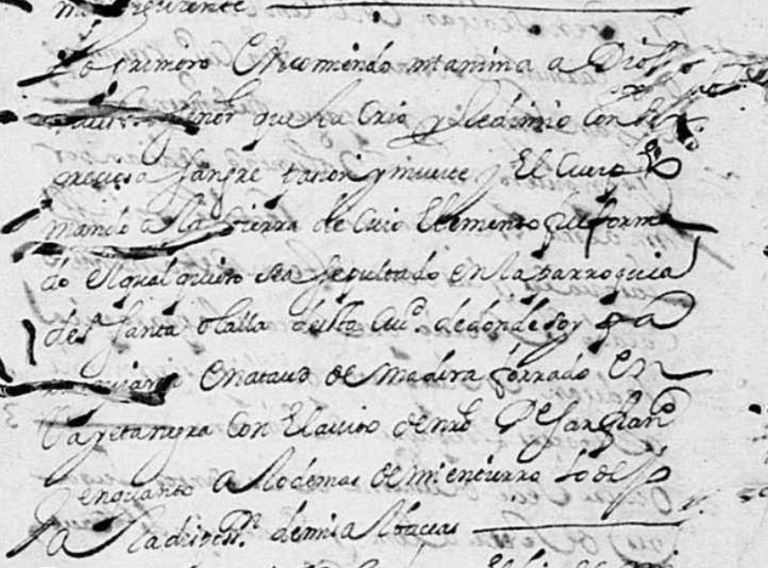 siguiente
Lo primero encomiendo mi anima a Dios
nuestro Señor que la crio y Redimio con su
preciosa sangre pasion y muerte y El cuerpo
mando a la tierra de cuio Elemento fue forma
do el qual quiero sea sepultado en la Parroquia
de Santa olalla desta ciud. de donde soy
en ataud de madera forrado En
Vayeta negra con El auito de nro Pe San Franco
en quanto a lo demas de mi entierro lo dejo
a la dispon. de mis Albaceas